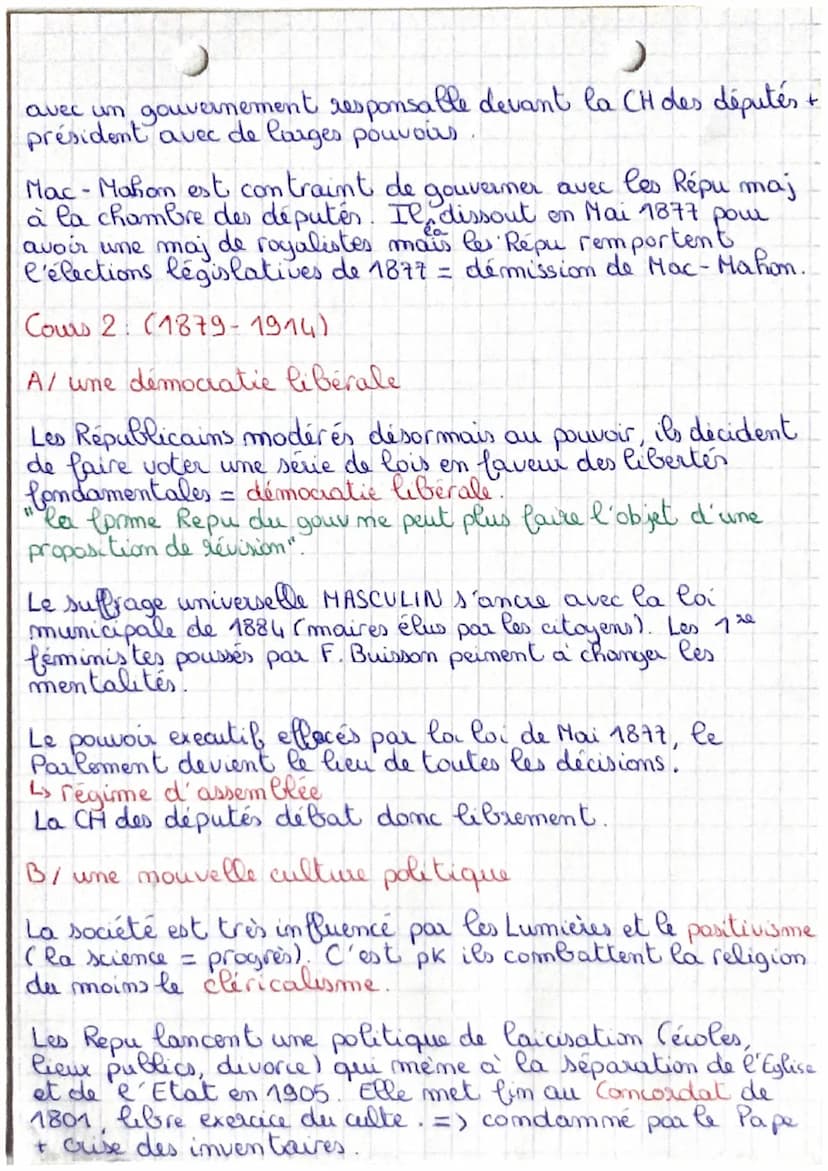 avec un gouvernement responsable devant la CH des députés +
président avec de larges pouvoirs.
Mac-Mahon est contraint de gouverner avec les Répu maj
à la chambre des députés. Il la dissout en Mai 1877 pour
avoir une maj de royalistes mais les Répu remportent
l'élections législatives de 1877 = démission de Mac-Mahon.
Cours 2 : (1879-1914)
A/ une démocratie libérale
Les Républicains modérés désormais au pouvoir, ils décident
de faire voter une série de lois en faveur des libertés
fondamentales = démocratie libérale.
"la forme Repu du gouv me peut plus faire l'objet d'une
proposition de révision".
Le suffrage universelle MASCULIN s'ancre avec la loi
municipale de 1884 (maires élus par les citoyens). Les 1re
féministes poussés par F. Buisson peinent à changer les
mentalités.
Le pouvoir executif effacés par la loi de Mai 1877, le
Parlement devient le lieu de toutes les décisions.
↳ régime d'assemblée
La CH des députés débat donc librement.
B/ une nouvelle culture politique
La société est très influencé par les Lumières et le positivisme
(la science = progrès). C'est pk ils combattent la religion
du moins le cléricalisme.
Les Repu lancent une politique de laïcisation (écoles,
lieux publics, divorce) qui mène à la séparation de l'Eglise
et de l'Etat en 1905. Elle met fin au Concordat de
1801, libre exercice du culte. => comdammé par le Pape
+ crise des inventaires.